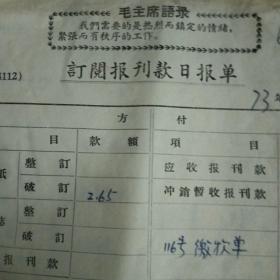 毛主席語录
我們需要的是热烈而鎮定的情緒,
緊張而有秩序的工作。
112)
訂閱报刊款日报单
73年
方 付
目 款 額 項 目
整 訂 应收报刊款
破 訂 2.65 冲銷暫收报刊款
整 訂
破 訂 116号缴款单
报刊款